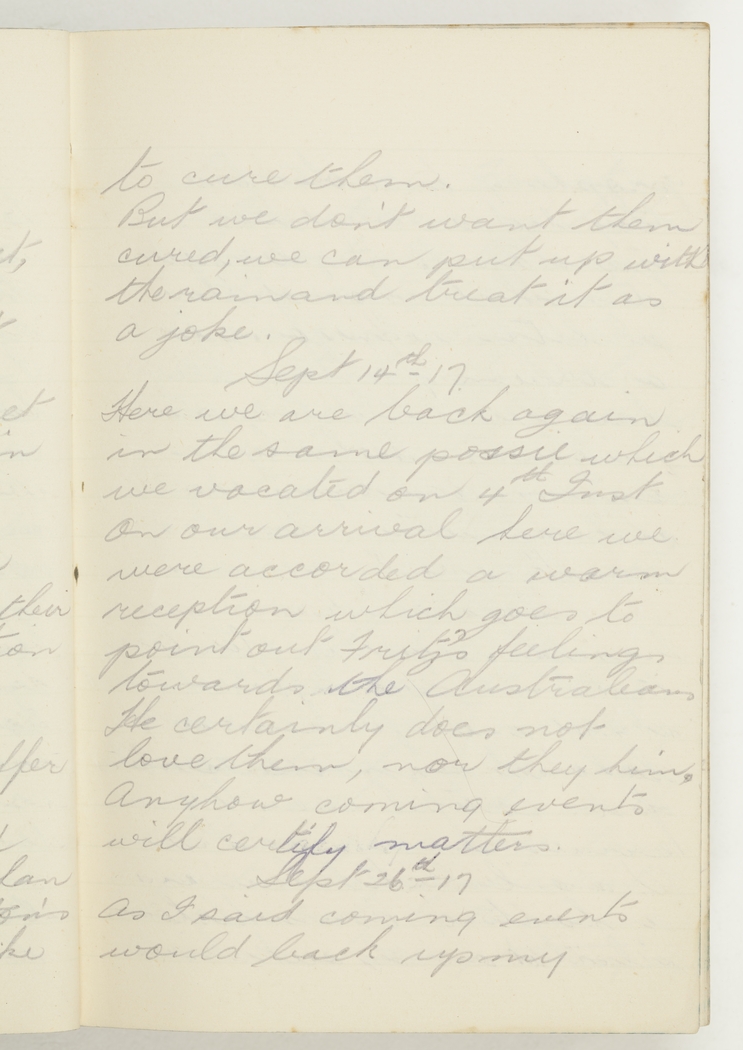 to cure them.
But we don't want them
cured, we can put up with
the rain and treat it as
a joke.
Sept 14th 17
Here we are back again
in the same possie which
we vacated on 4th Inst
On our arrival here we
were accorded a warm
reception which goes to
point out Fritz's feelings
towards the Australians
He certainly does not
love them, nor they him,
Anyhow coming events
will certify matters.
Sept 26th 17
As I said coming events
would back up my
et,
et
in
their
ion
ffer
lan
ke